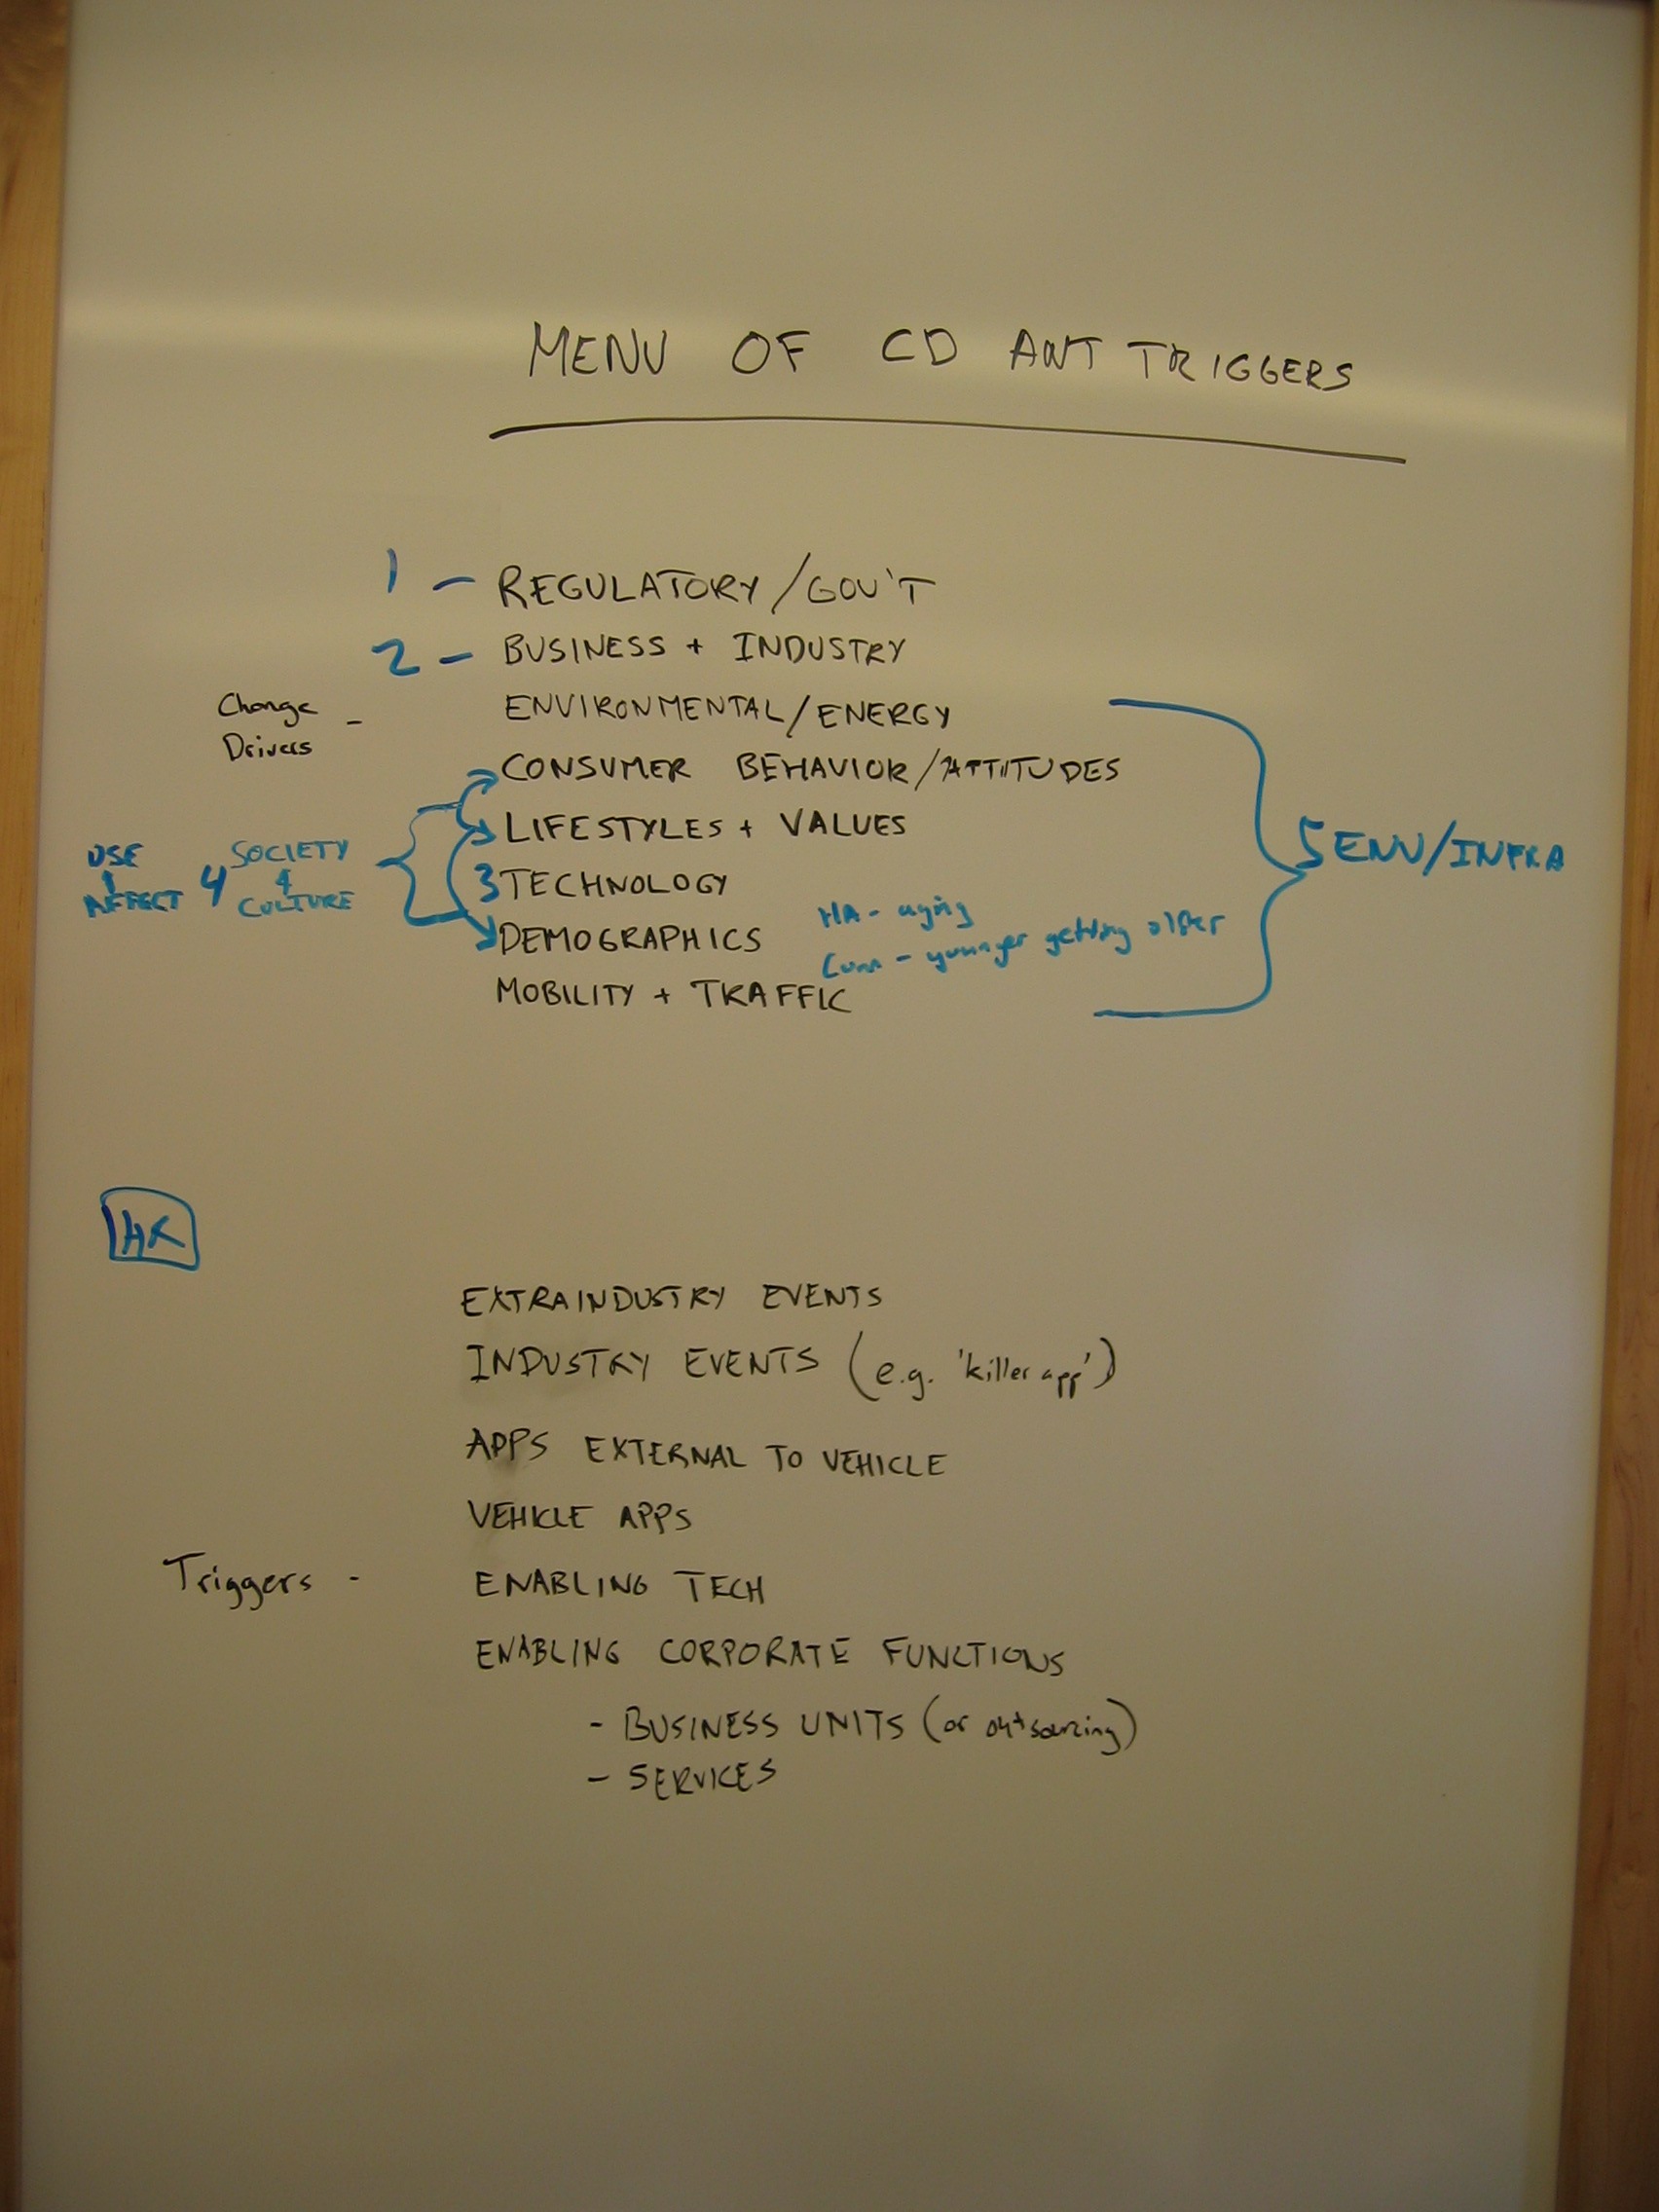 MENU OF CD ANT TRIGGERS
1 - REGULATORY/GOV'T
2 - BUSINESS + INDUSTRY
Change
Drivers -
ENVIRONMENTAL/ENERGY
CONSUMER BEHAVIOR/ATTITUDES
LIFESTYLES + VALUES
USE
AFFECT
4 SOCIETY
+
CULTURE
3 TECHNOLOGY
5 ENV/INFRA
DEMOGRAPHICS
- aging
- younger getting older
MOBILITY + TRAFFIC
HK
EXTRAINDUSTRY EVENTS
INDUSTRY EVENTS (e.g. 'killer app')
APPS EXTERNAL TO VEHICLE
VEHICLE APPS
Triggers - ENABLING TECH
ENABLING CORPORATE FUNCTIONS
- BUSINESS UNITS (or outsourcing)
- SERVICES